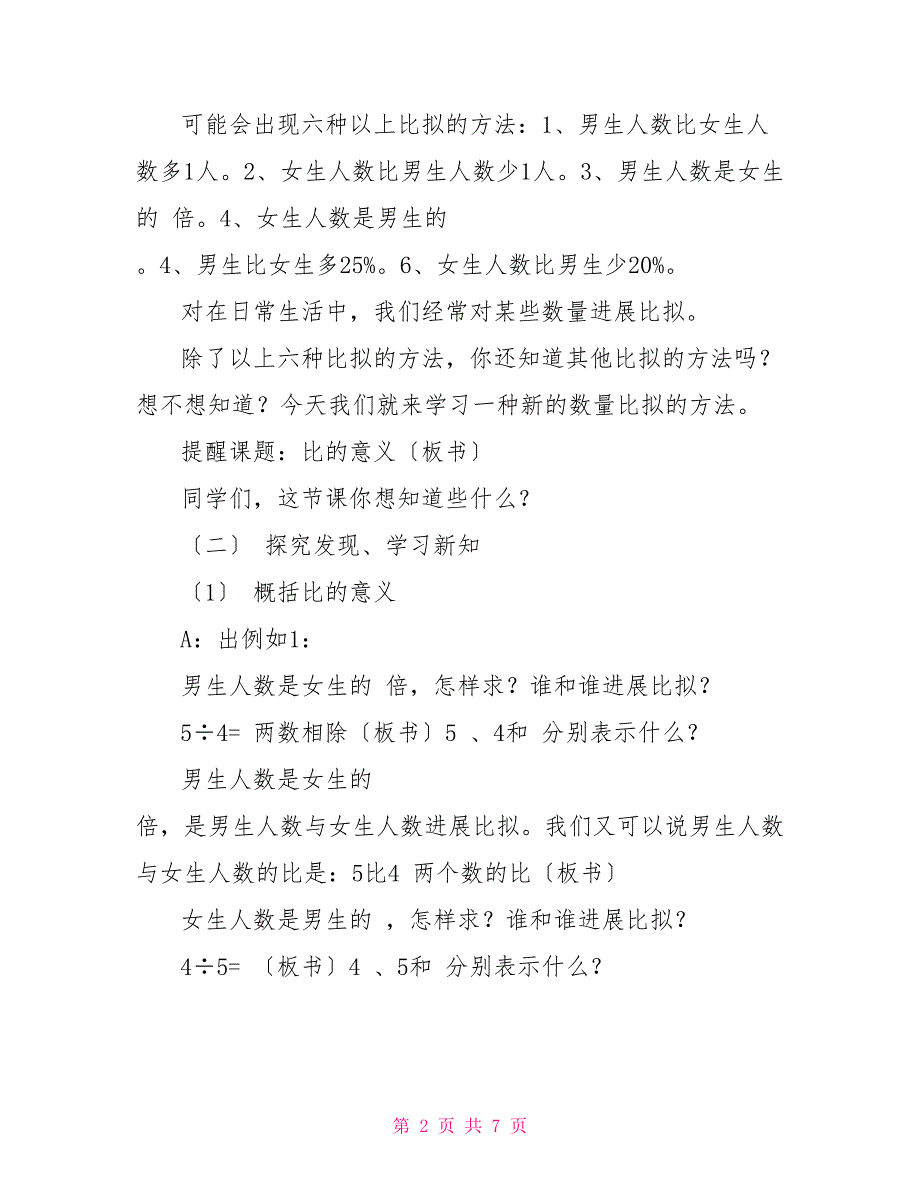 可能会出现六种以上比拟的方法：1、男生人数比女生人
数多1人。2、女生人数比男生人数少1人。3、男生人数是女生
的 倍。4、女生人数是男生的
。4、男生比女生多25%。6、女生人数比男生少20%。
对在日常生活中，我们经常对某些数量进展比拟。
除了以上六种比拟的方法，你还知道其他比拟的方法吗？
想不想知道？今天我们就来学习一种新的数量比拟的方法。
提醒课题：比的意义〔板书〕
同学们，这节课你想知道些什么？
〔二〕 探究发现、学习新知
〔1〕 概括比的意义
A：出例如1：
男生人数是女生的 倍，怎样求？谁和谁进展比拟？
5÷4= 两数相除〔板书〕5 、4和 分别表示什么？
男生人数是女生的
倍，是男生人数与女生人数进展比拟。我们又可以说男生人数
与女生人数的比是：5比4 两个数的比〔板书〕
女生人数是男生的 ，怎样求？谁和谁进展比拟？
4÷5= 〔板书〕4 、5和 分别表示什么？
第 2 页 共 7 页